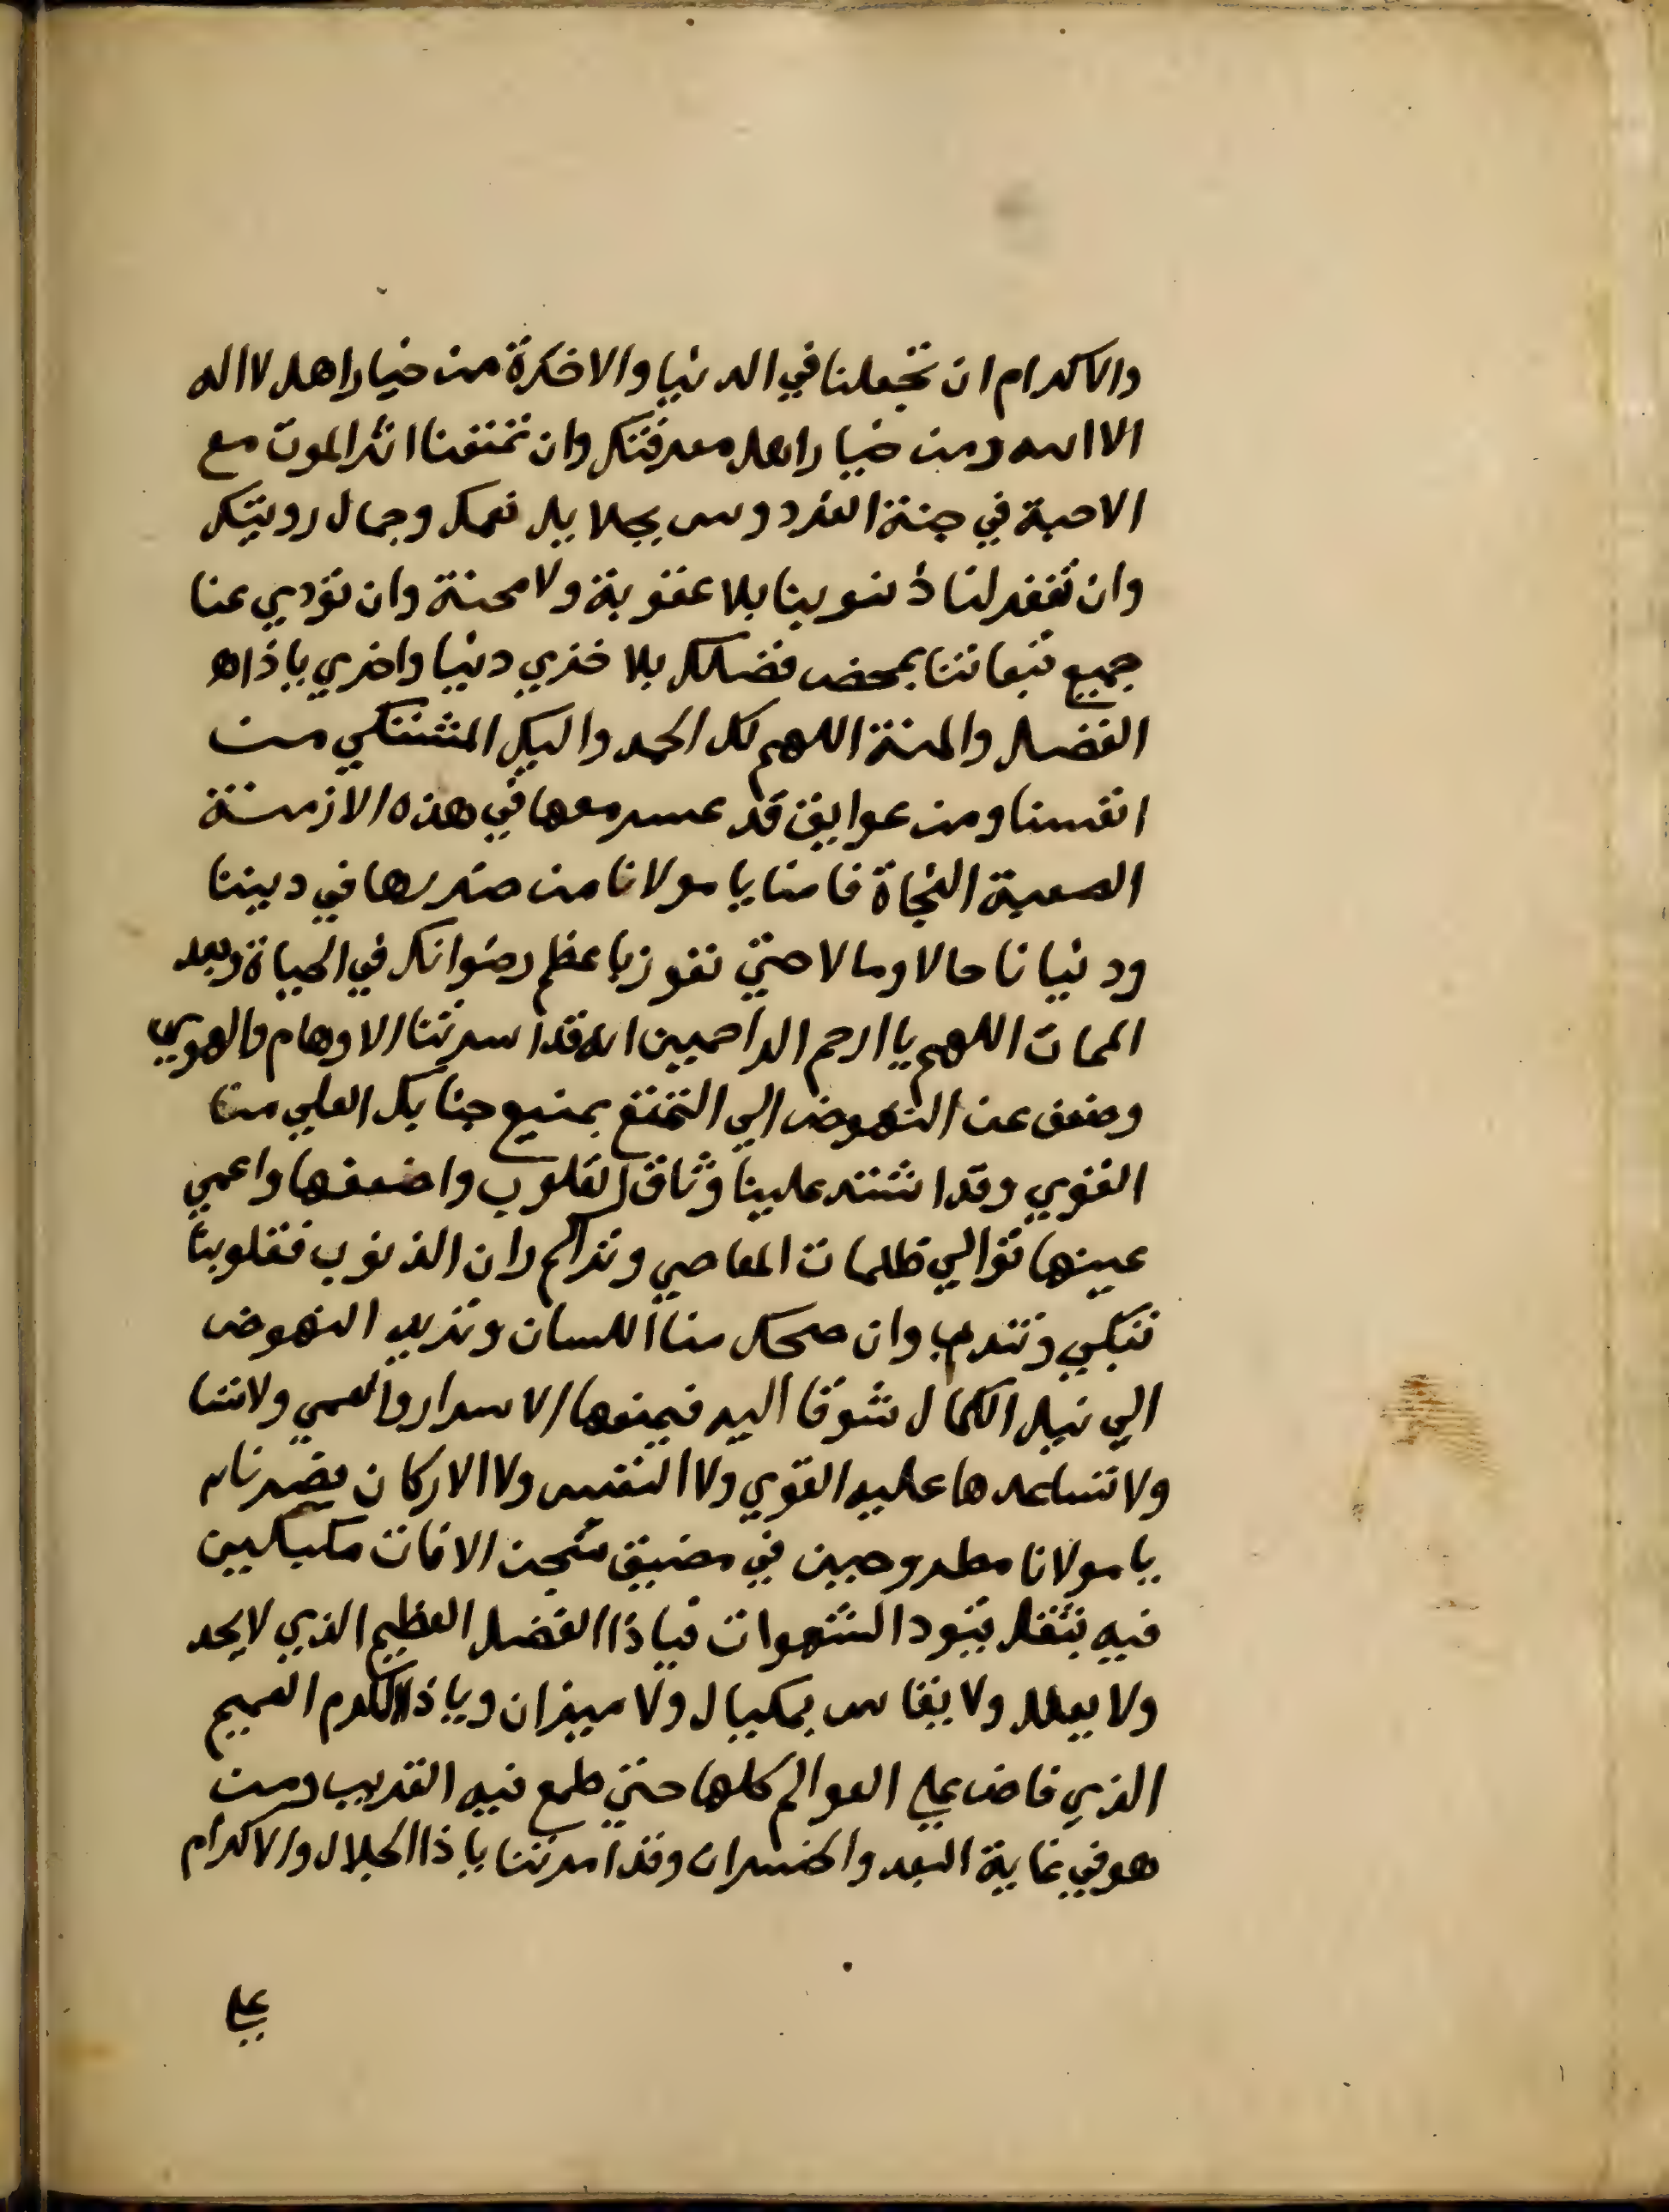 والاكرام ان تجعلنا في الدنيا والاخرة من خيار اهل لا اله
الا الله ومن خيار اهل معرفتك وان تمتعنا اثر الموت مع
الاحبة في جنة الفردوس بجلايل نعمك وجمال رويتك
وان تغفر لنا ذنوبنا بلا عقوبة ولا محنة وان تؤدي عنا
جميع تبعاتنا بمحض فضلك بلا خزي دنيا واخري ياذا
الفضل والمنة اللهم لك الحمد واليك المشتكي من
انفسنا ومن عوايق قد عسر معها في هذه الازمنة
الصعبة النجاة فامنا يا مولانا من ضررها في ديننا
ودنيانا حالا ومالا حتي نفوز باعظم رضوانك في الحياة وبعد
الممات اللهم يا ارحم الراحمين انه قد اسرتنا الاوهام والهوي
وضعف عن النهوض الي التمتع بمنيع جنابك العلي منا
القوي وقد اشتد علينا وثاق القلوب واضعفها واعمي
عينها توالي ظلمات المعاصي وتراكم ران الذنوب فقلوبنا
تبكي وتندب وان ضحك منا اللسان وتريد النهوض
الي نيل الكمال شوقا اليه فيمنعها الاسرار والعمي ولا
ولا تساعدها عليه القوي ولا النفس ولا الاركان بصرنا
يا مولانا مطروحين في مضيق سجن الافات مكبلين
فيه بثقل قيود الشهوات فياذا الفضل العظيم الذي لا يحد
ولا يعلل ولا يقاس بمكيال ولا ميزان وياذا الكرم العميم
الذي فاض علي العوالم كلها حتي طمع فيه القريب ومن
هو في غاية البعد والخسران وقد امرتنا ياذا الجلال والاكرام
علي